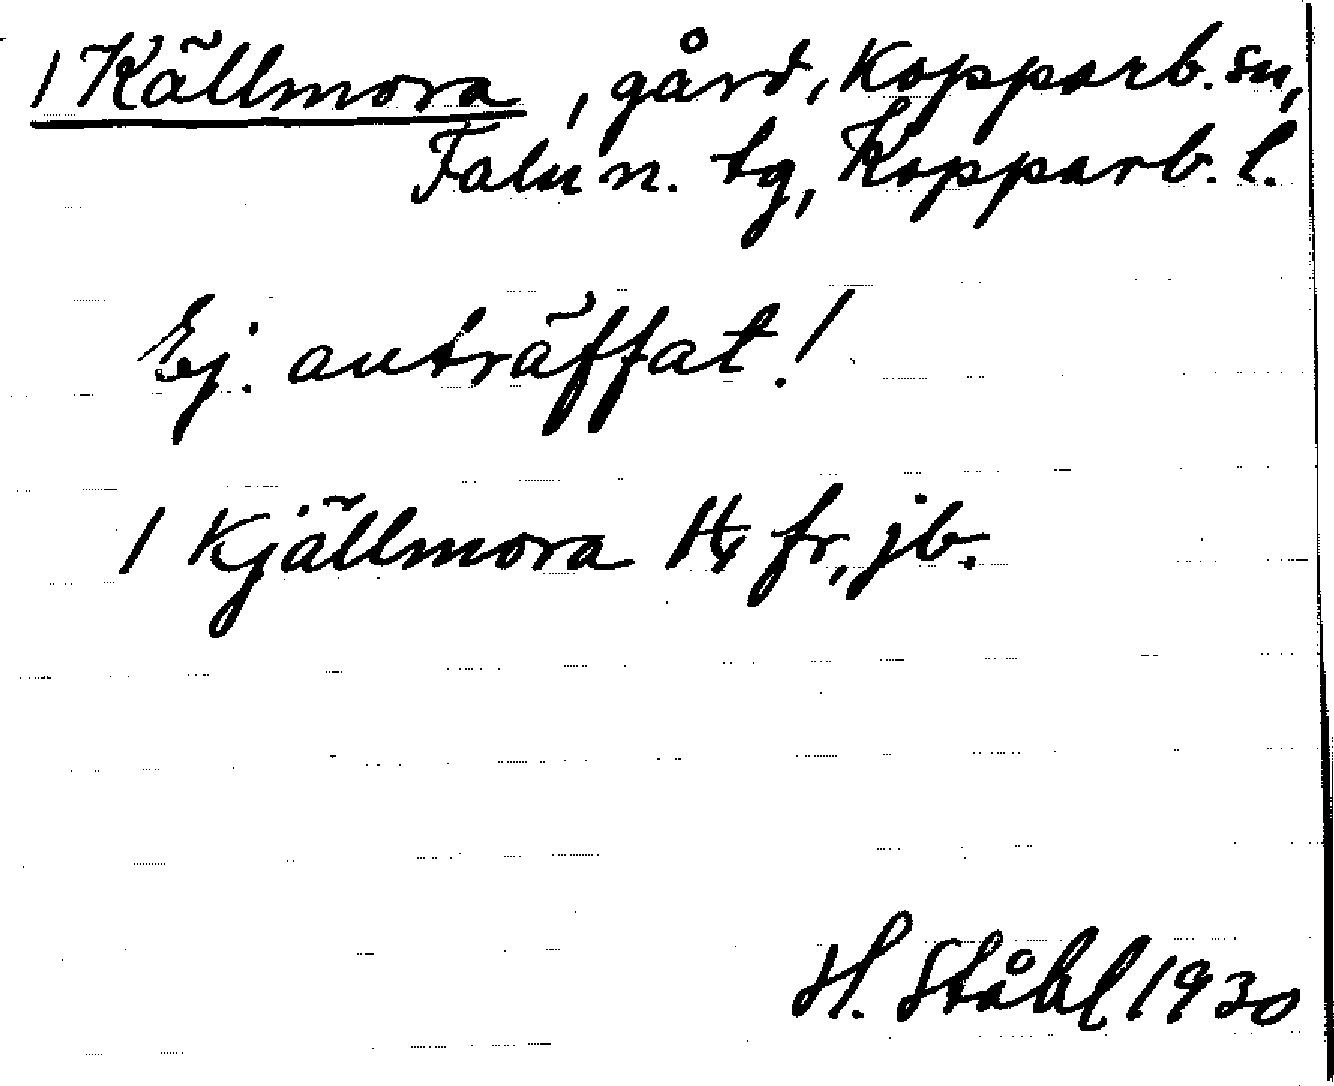 1 Källmora, gård, Kopparb. sn,
Falu n. tg, Kopparb. l.
Ej. anträffat!
1 Kjällmora Ht fr, jb.
H. Ståhl 1930